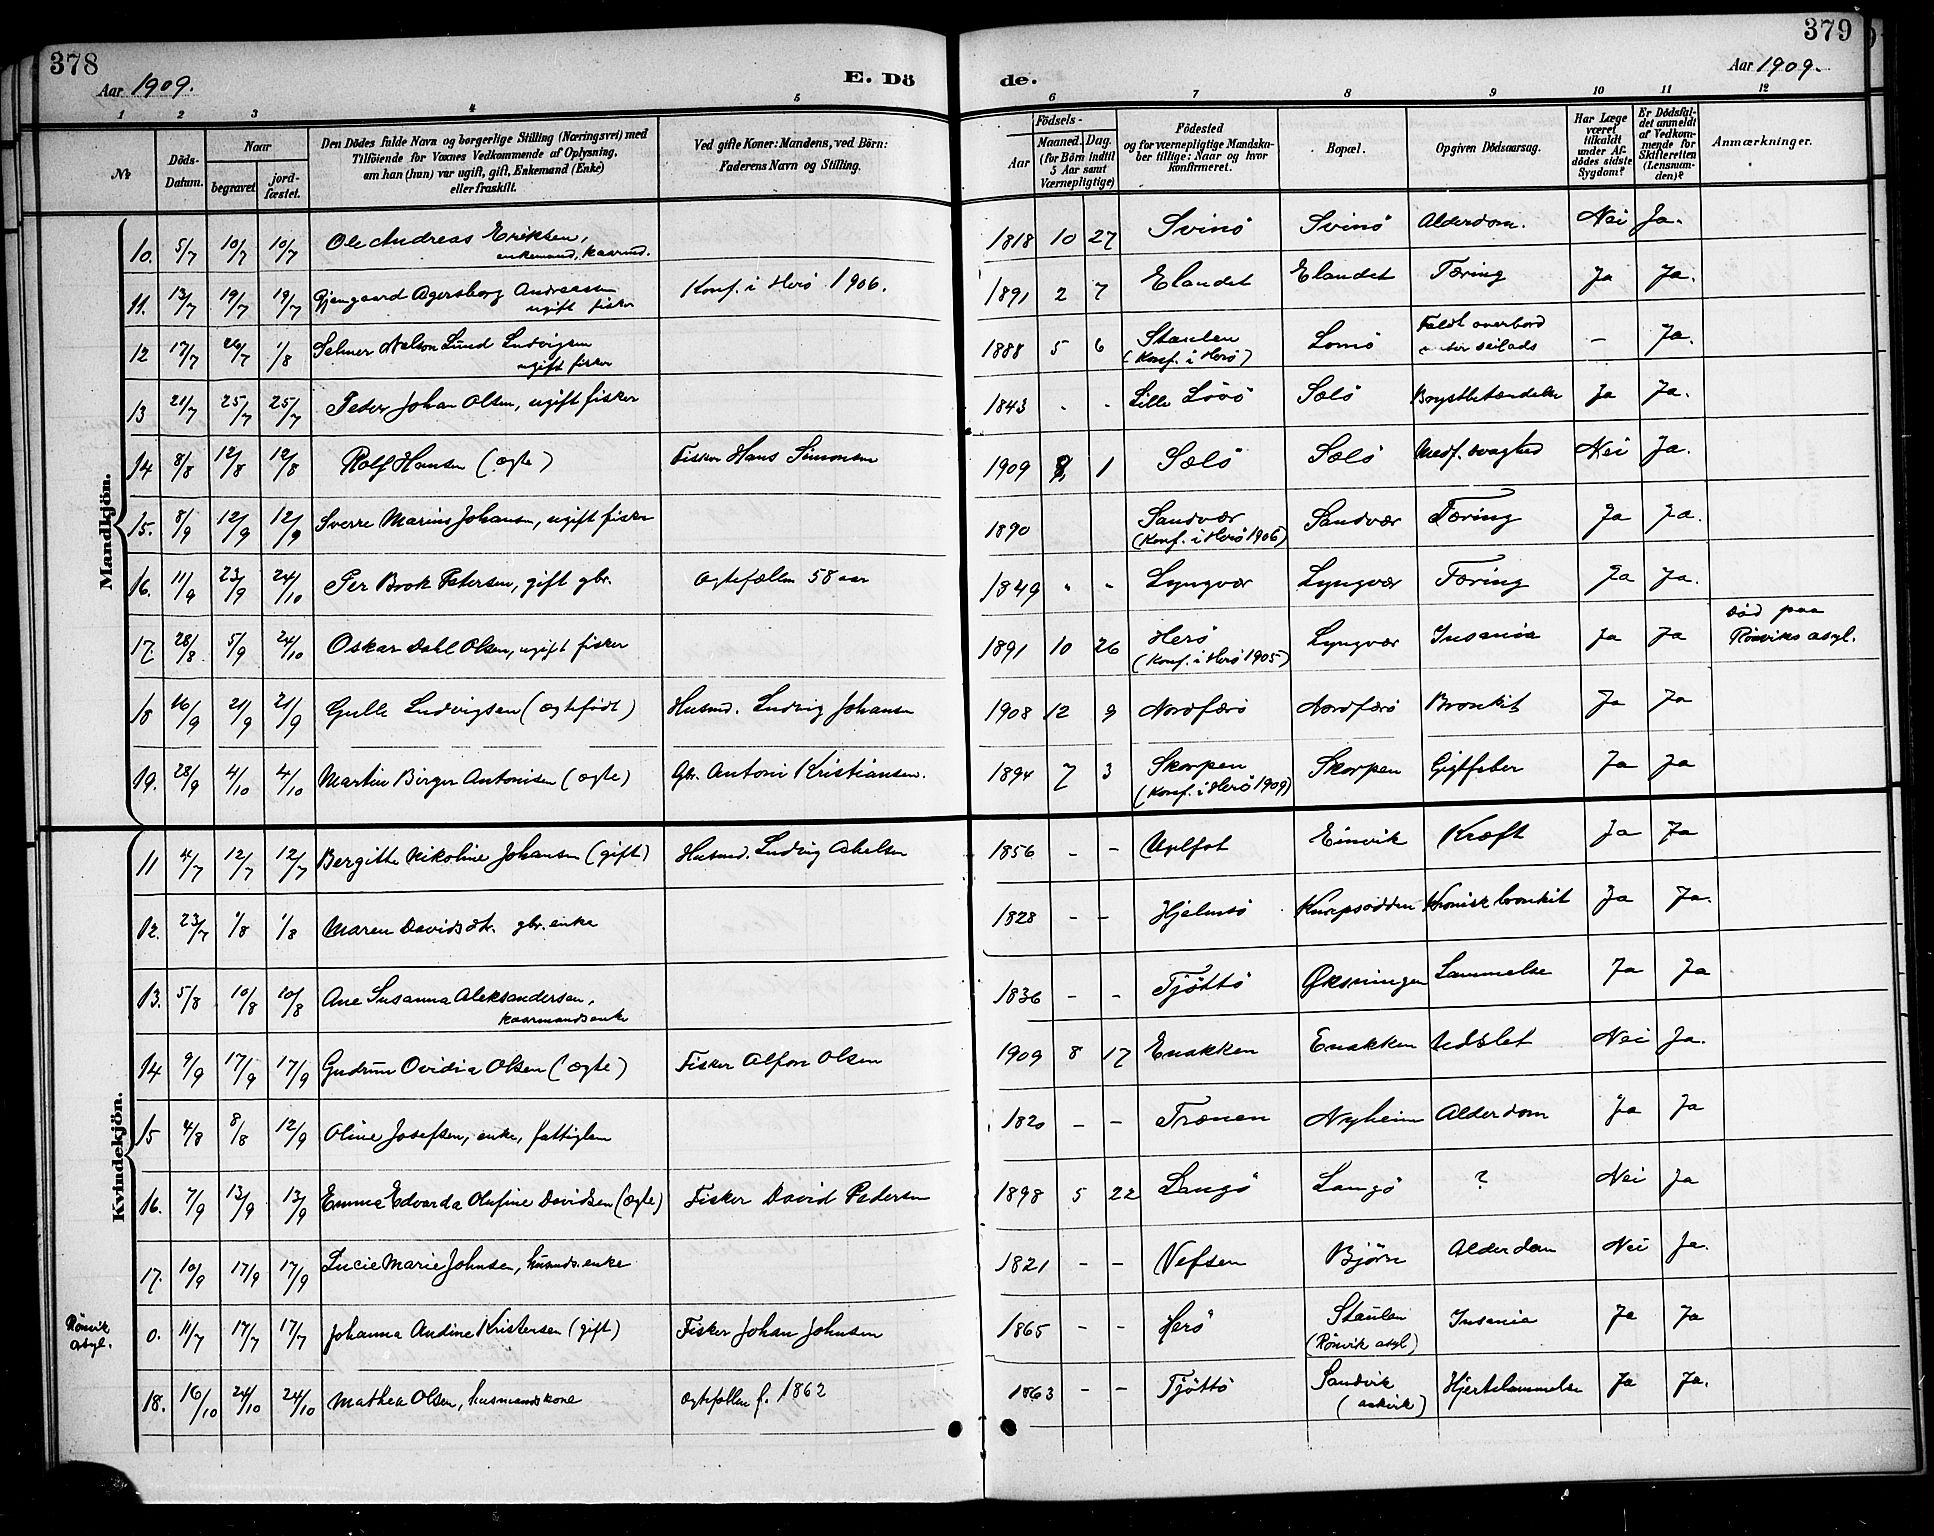 378
Aar 1909.
E. Dö
de.
379
Aar 1909.
1 2 3 4 5 6 7 8 9 10 11 12
№
Döds-Datum.
Naar
begravet
jord-fæstet.
Den Dödes fulde Navn og borgerlige Stilling (Næringsvei) med
Tilföiende for Voxnes Vedkommende af Oplysning,
om han (hun) var ugift, gift, Enkemand (Enke)
eller fraskilt.
Ved gifte Koner: Mandens, ved Börn:
Faderens Navn og Stilling.
Födsels-
Aar
Maaned. Dag.
(for Börn indtil
5 Aar samt
Værnepligtige)
Födested
og for værnepligtige Mandska-
ber tillige: Naar og hvor
konfirmeret.
Bopæl.
Opgiven Dödsaarsag.
Har Læge
været
tilkaldt
under Af-
dödes sidste
Sygdom?
Er Dödsfal-
det anmeldt
af Vedkom-
mende for
Skifteretten
(Lensman-
den)?
Anmærkninger.
Mandkjön.
10. 5/7 10/7 10/7 Ole Andreas Eriksen, 1818 10 27 Svinö Svinö Alderdom. Nei Ja.
enkemand, kaarmd.
11. 13/7 19/7 19/7 Gjengaard Agersborg Andreasen Konf. i Herö 1906. 1891 2 7 Elandet Elandet Tæring Ja Ja.
ugift fisker
12 17/7 26/7 1/8 Selmer Nelson Lund Ludvigsen 1888 5 6 Staulen Lomö Faldt overbord – Ja.
ugift fisker (Konf. i Herö) under seilads
13 21/7 25/7 25/7 Peder Johan Olsen, ugift fisker 1843 - - Lille Lövö Sælö Brystbetændelse Ja Ja.
14 8/8 12/8 12/8 Rolf Hansen (ægte) Fisker Hans Simonsen 1909 8 1 Sælö Sælö Medf. svaghed Nei Ja.
15. 8/9 12/9 12/9 Sverre Marius Johansen, ugift fisker 1890 Sandvær Sandvær Tæring Ja Ja.
(Konf. i Herö 1906)
16. 11/9 23/9 24/10 Per Brok Petersen, gift gbr. Ægtefællen 58 aar 1849 " " Lyngvær Lyngvær Tæring Ja Ja.
17. 28/8 5/9 24/10 Oskar Dahl Olsen, ugift fisker 1891 10 26 Herö Lyngvær Insania Ja Ja Död paa
(Konf. i Herö 1905) Rönviks asyl.
18 16/9 21/9 21/9 Gulle Ludvigsen (ægtefödt) Husmd. Ludvig Johansen 1908 12 9 Nordfærö Nordfærö Bronkit Ja Ja
19. 28/9 4/10 4/10 Martin Birger Antonisen (ægte) Gbr. Antoni Kristiansen. 1894 7 3 Skorpen Skorpen Gigtfeber Ja Ja
(Konf. i Herö 1909)
Kvindekjön.
11 4/7 12/7 12/7 Bergitte Nikoline Johansen (gift) Husmd. Ludvig Abelsen 1856 - - Einvik Kræft Ja Ja
12. 23/7 1/8 1/8 Maren Davidsdtr. gbr. enke 1828 - - Hjelmsö Knepsodden Kronisk bronkit Ja Ja.
13. 5/8 10/8 10/8 Ane Susanna Aleksandersen, 1836 - - Tjöttö Øksningen Lammelse Ja Ja
kaarmandsenke
14 9/9 17/9 17/9 Gudrun Ovidia Olsen (ægte) Fisker Alfon Olsen 1909 8 17 Enakken Enakken Udslet Nei Ja.
15 4/8 8/8 12/9 Oline Josefsen, enke, fattiglem 1820 - - Trænen Nyheim Alderdom Ja Ja
16. 7/9 13/9 13/9 Emma Edvarda Olufine Davidsen (ægte) Fisker David Pedersen 1898 5 22 Langö Langö ? Nei Ja
17. 10/9 17/9 17/9 Lucie Marie Johnsen, husmds. enke 1821 - - Vefsen Björn Alderdom Nei Ja.
Rönvik
asyl.
0. 11/7 17/7 17/7 Johanna Andine Kristensen (gift) Fisker Johan Johnsen 1865 - - Herö Staulen Insania Ja Ja
(Rönvik asyl)
18. 16/10 24/10 24/10 Mathea Olsen, husmandskone Ægtefællen f. 1862 1863 - - Tjöttö Sandvik Hjertelammelse Ja Ja.